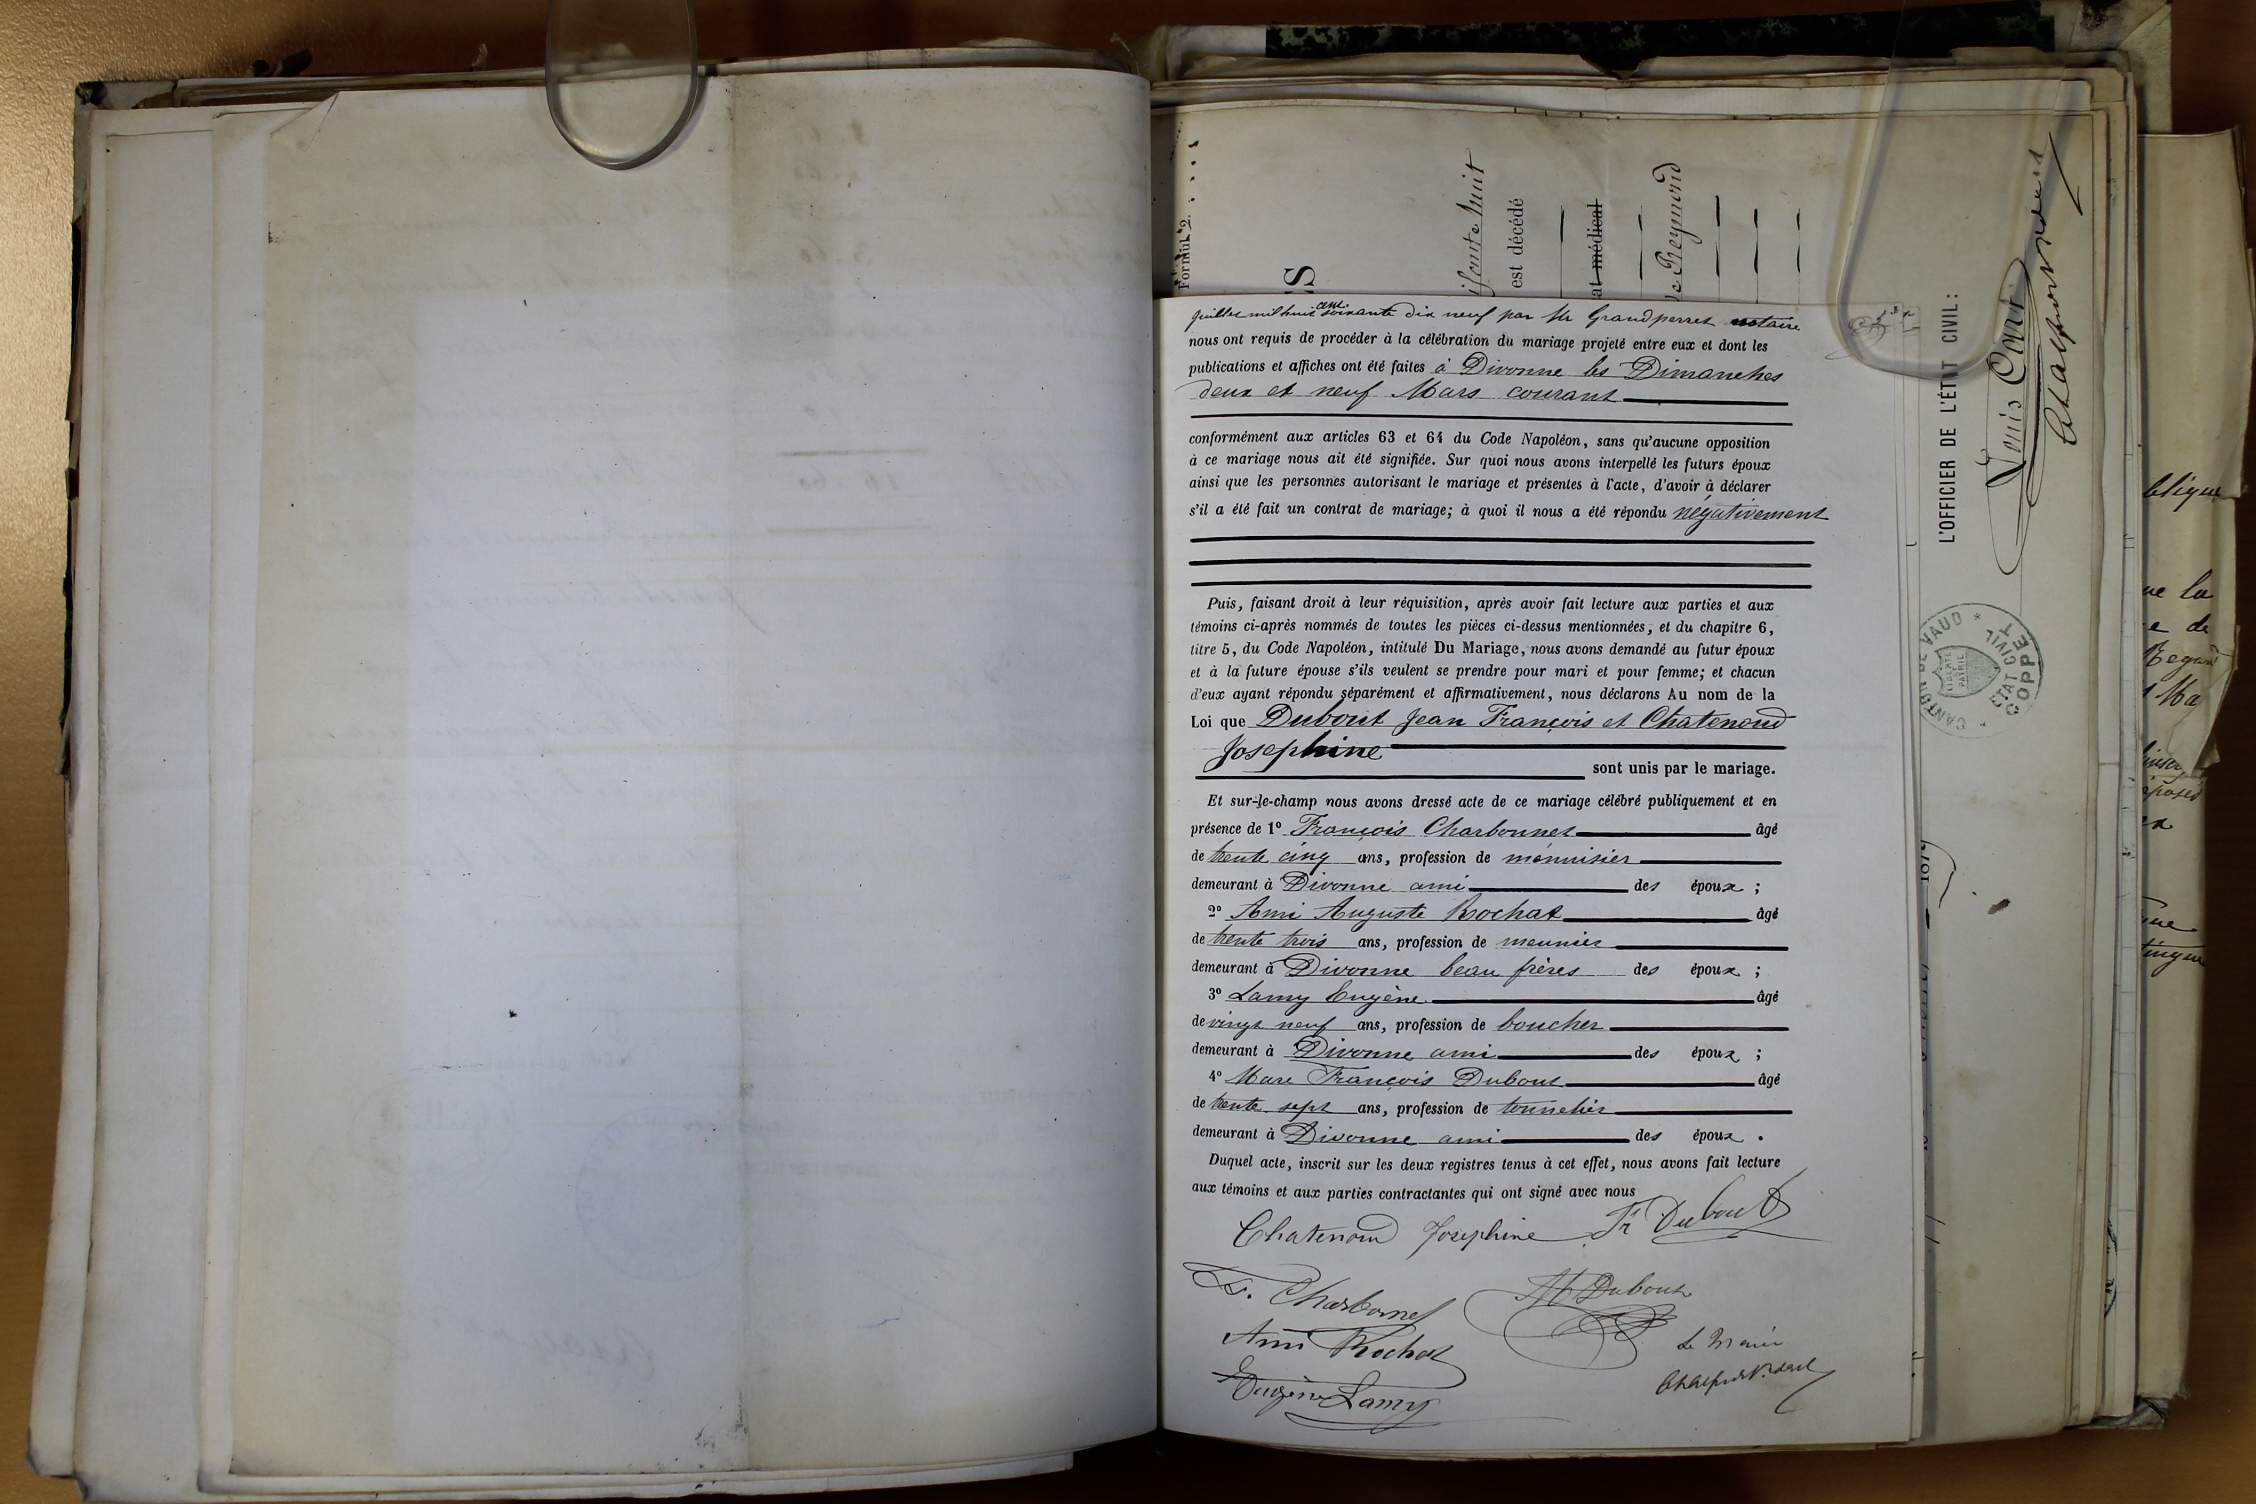 Formul. 2.
ifomte huit
est décédé
at médical
de Reymond
L'OFFICIER DE L'ÉTAT CIVIL:
Louis Cart
CANTON DE VAUD
LIBERTÉ ET PATRIE
ETAT CIVIL
COPPET
juillet mil huit cent soixante dix neuf par Mr Grandperret notaire
nous ont requis de procéder à la célébration du mariage projeté entre eux et dont les
publications et affiches ont été faites à Divonne les Dimanches
deux et neuf Mars courant
conformément aux articles 63 et 64 du Code Napoléon, sans qu'aucune opposition
à ce mariage nous ait été signifiée. Sur quoi nous avons interpellé les futurs époux
ainsi que les personnes autorisant le mariage et présentes à l'acte, d'avoir à déclarer
s'il a été fait un contrat de mariage; à quoi il nous a été répondu négativement
Puis, faisant droit à leur réquisition, après avoir fait lecture aux parties et aux
témoins ci-après nommés de toutes les pièces ci-dessus mentionnées, et du chapitre 6,
titre 5, du Code Napoléon, intitulé Du Mariage, nous avons demandé au futur époux
et à la future épouse s'ils veulent se prendre pour mari et pour femme; et chacun
d'eux ayant répondu séparément et affirmativement, nous déclarons Au nom de la
Loi que Dubout Jean François et Chatenoud
Josephine
sont unis par le mariage.
Et sur-le-champ nous avons dressé acte de ce mariage célébré publiquement et en
présence de 1º François Charbonnet âgé
de trente cinq ans, profession de menuisier
demeurant à Divonne ami des époux ;
2º Ami Auguste Rochat âgé
de trente trois ans, profession de meunier
demeurant à Divonne beau frères des époux ;
3º Lamy Eugène âgé
de vingt neuf ans, profession de boucher
demeurant à Divonne ami des époux ;
4º Marc François Dubout âgé
de trente sept ans, profession de tonnelier
demeurant à Divonne ami des époux .
Duquel acte, inscrit sur les deux registres tenus à cet effet, nous avons fait lecture
aux témoins et aux parties contractantes qui ont signé avec nous
Chatenoud Josephine Fr Dubout
F. Charbonnet M Dubout
Ami Rochat Le Maire
Eugène Lamy